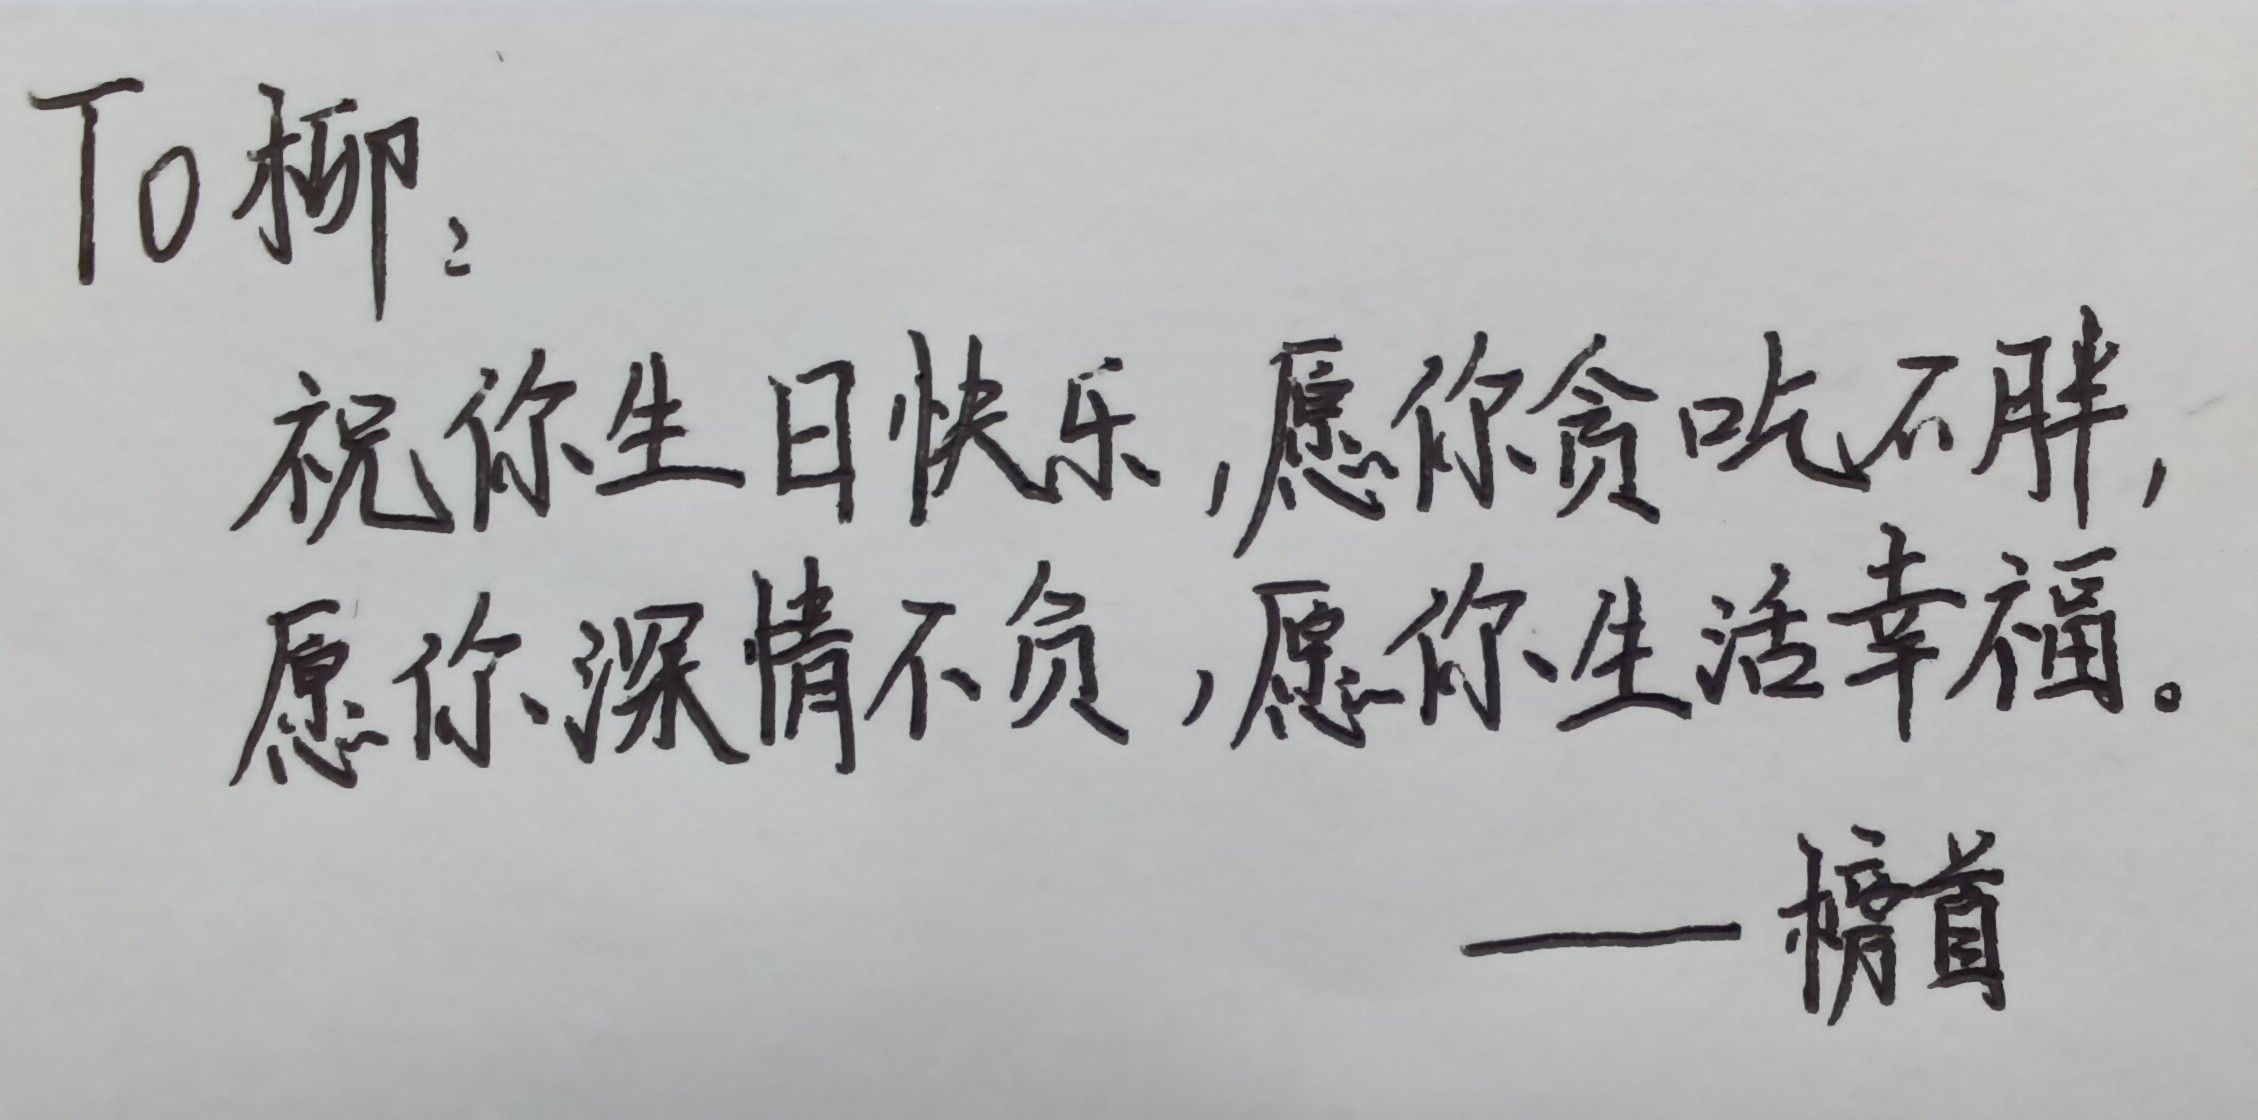 To柳：
祝你生日快乐，愿你贪吃不胖，
愿你深情不负，愿你生活幸福。
——榜首